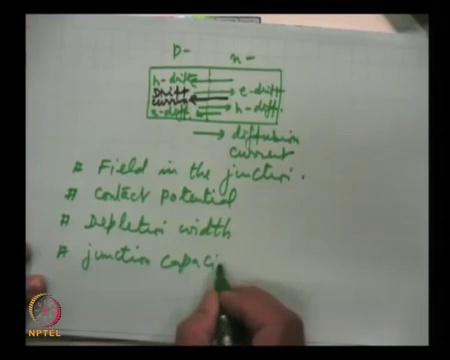 p- n-
h-drift
Drift e-drift
current h-diff.
e-diff.
diffusion
current
# Field in the junction.
# Contact potential
# Depletion width
# junction capaci
NPTEL